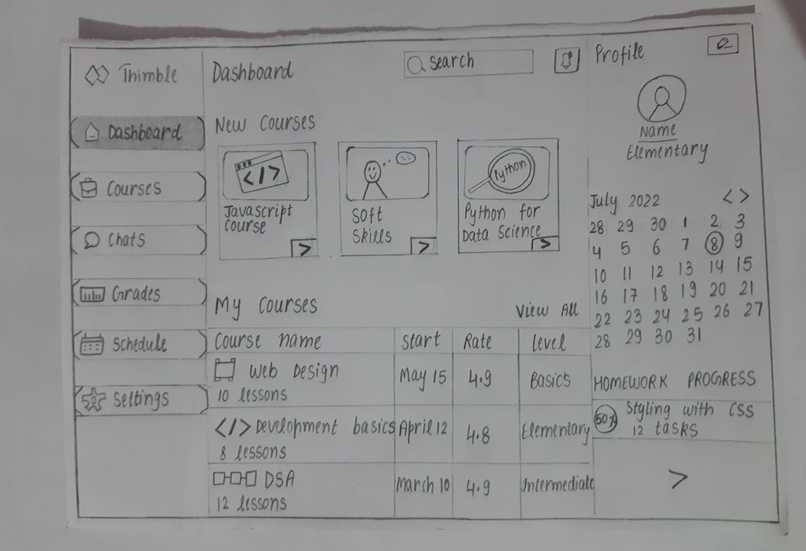 Thimble
Dashboard
Courses
Chats
Grades
Schedule
Settings
Dashboard
Search
New Courses
</>
Javascript
course
Soft
Skills
Python
Python for
Data Science
>
>
>
My Courses
View All
Course name
Start
Rate
Level
Web Design
10 lessons
May 15
4.9
Basics
</> Development basics
8 lessons
April 12
4.8
Elementary
DSA
12 lessons
March 10
4.9
Intermediate
Profile
Name
Elementary
July 2022 < >
28 29 30 1 2 3
4 5 6 7 8 9
10 11 12 13 14 15
16 17 18 19 20 21
22 23 24 25 26 27
28 29 30 31
HOMEWORK PROGRESS
50%
Styling with CSS
12 tasks
>